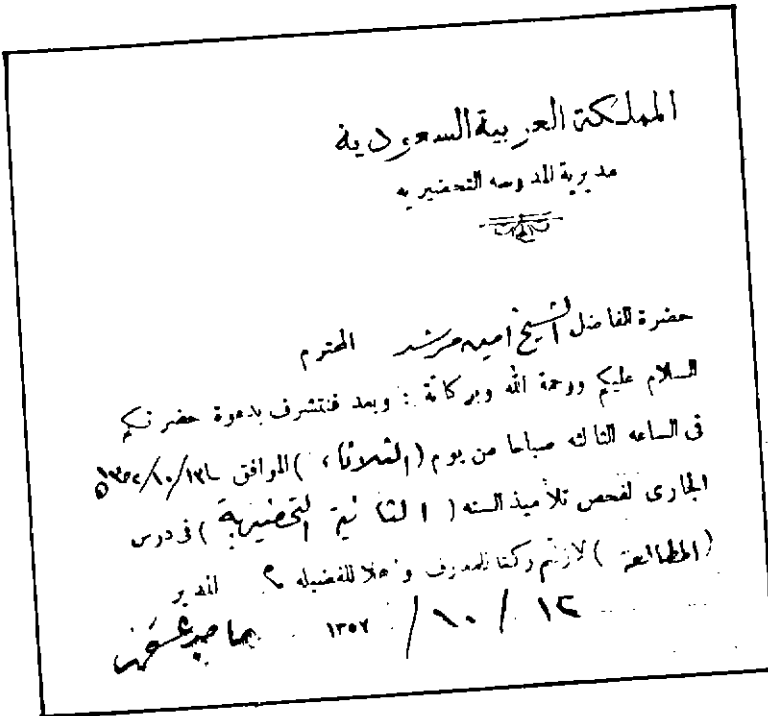 المملكة العربية السعودية
مديرية المدرسه التحضيريه
حضرة الفاضل الشيخ امين مرشد المحترم
السلام عليكم ورحمة الله وبركاته : وبعد فنتشرف بدعوة حضرتكم
فى الساعه الثالثه صباحا من يوم ( الثلاثاء ) الموافق
الجارى لفحص تلاميذ السنه ( الثانية التحضيرية ) فى درس
( المطالعة ) لازلتم ركنا للمعارف و اهلا للفضيله المدير
١٣ / ١٠ / ١٣٥٢